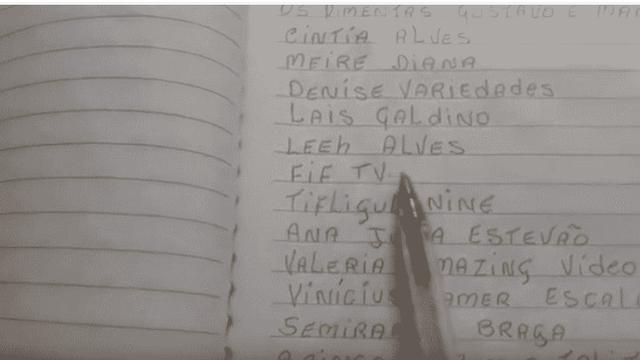 OS PIMENTAS GUSTAVO E
CINTIA ALVES
MEIRE DIANA
DENISE VARIEDADES
LAIS GALDINO
LEEh ALVES
FIF TV
NINE
ANA ESTEVÃO
VALERIA Video
VINICIUS ESCAL
BRAGA